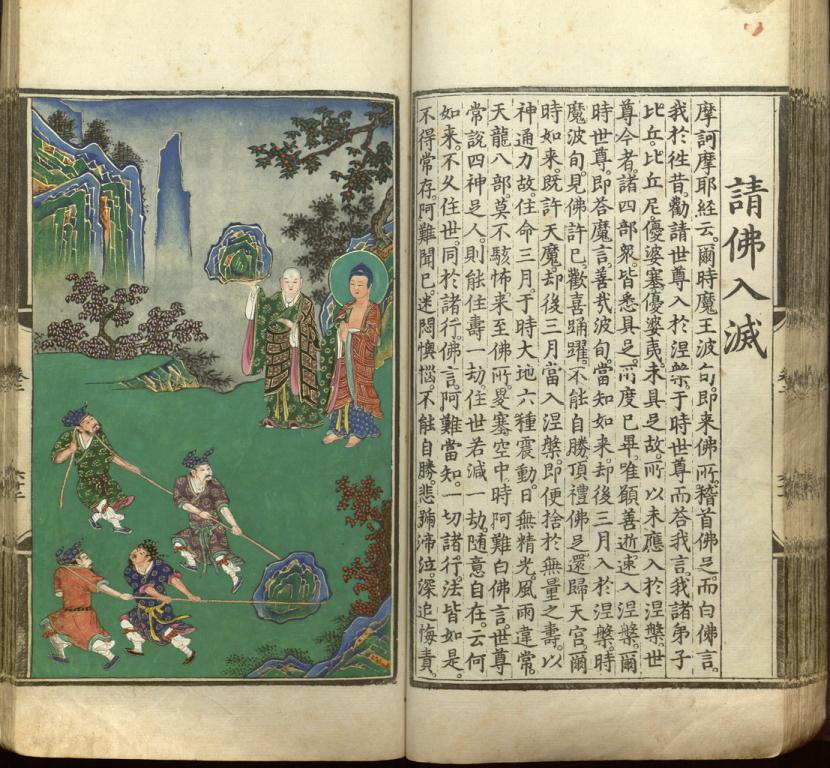 請佛入滅
摩訶摩耶経云。爾時魔王波旬。即来佛所。稽首佛足。而白佛言。
我於往昔勸請世尊入於涅槃。于時世尊而荅我言。我諸弟子
比丘。比丘尼。優婆塞。優婆夷。未具足故。所以未應入於涅槃。世
尊今者。諸四部衆。皆悉具足。所度已畢。唯願善逝。速入涅槃。爾
時世尊。即荅魔言。善哉波旬。當知如来。却後三月入於涅槃。時
魔波旬。見佛許已。歡喜踊躍。不能自勝。頂禮佛足。還歸天宮。爾
時如来。既許天魔。却後三月。當入涅槃。即便捨於無量之壽。以
神通力故。住命三月。于時大地六種震動。日無精光。風雨違常。
天龍八部。莫不駭怖。来至佛所。畟塞空中。時阿難白佛言。世尊
常說四神足人。則能住壽一劫。住世若減一劫。随意自在。云何
如来。不久住世。同於諸行。佛言。阿難當知。一切諸行。法皆如是。
不得常存。阿難聞已。迷悶懊惱。不能自勝。悲號渧泣。深追悔責。